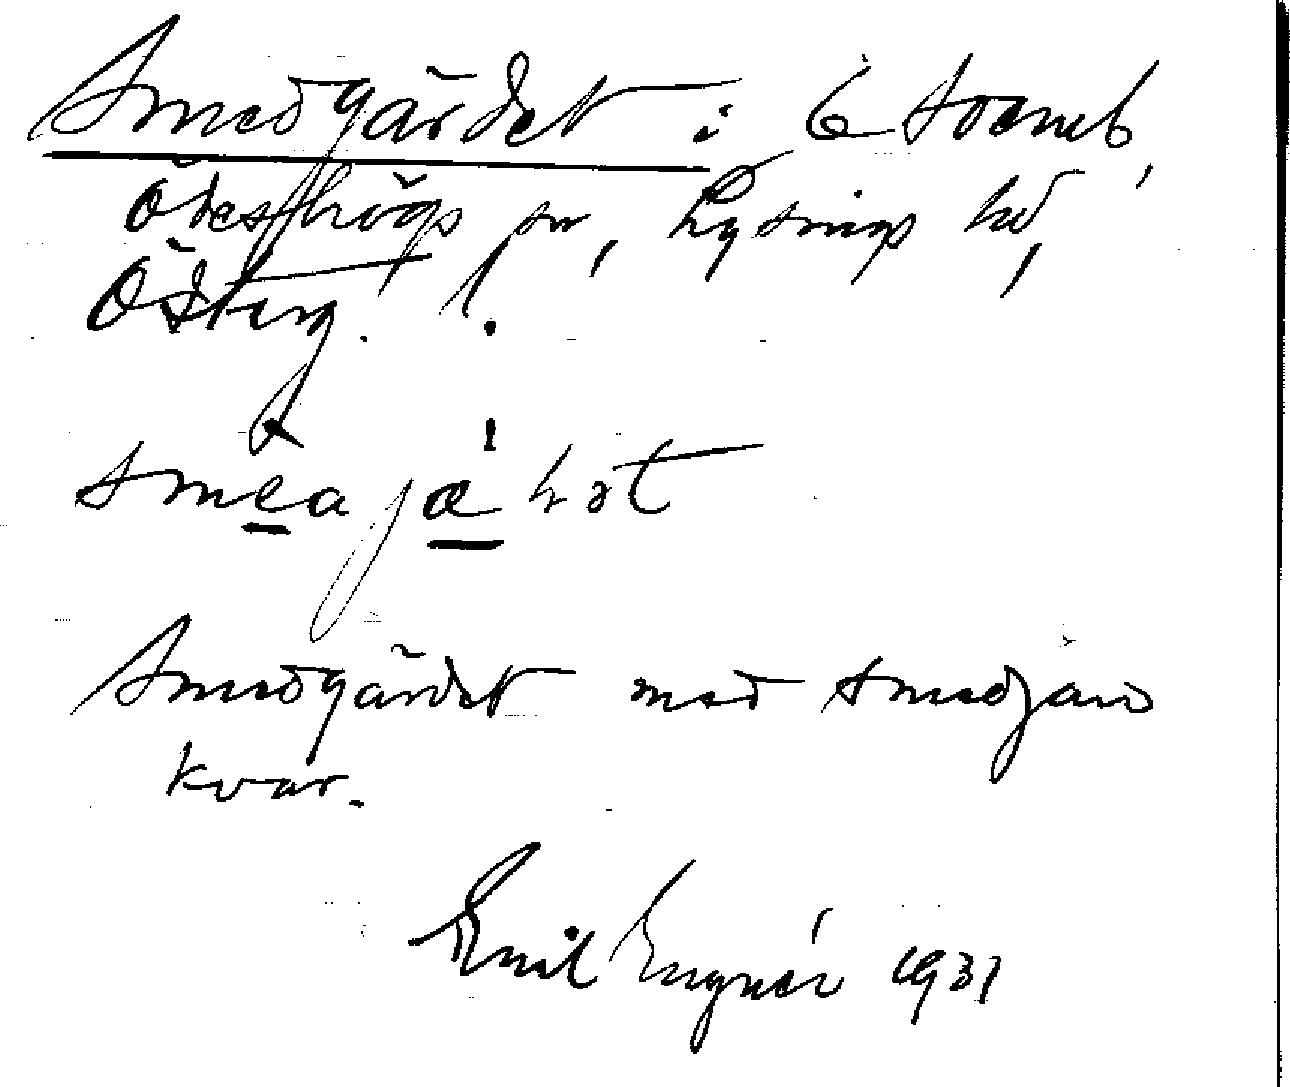 Smedgärdet i 6 Stomb,
Ödeshögs sn, Lysings hd,
Österg. l.
smeajähət
Smedgärdet med smedjan
kvar.
Emil Engnér 1931